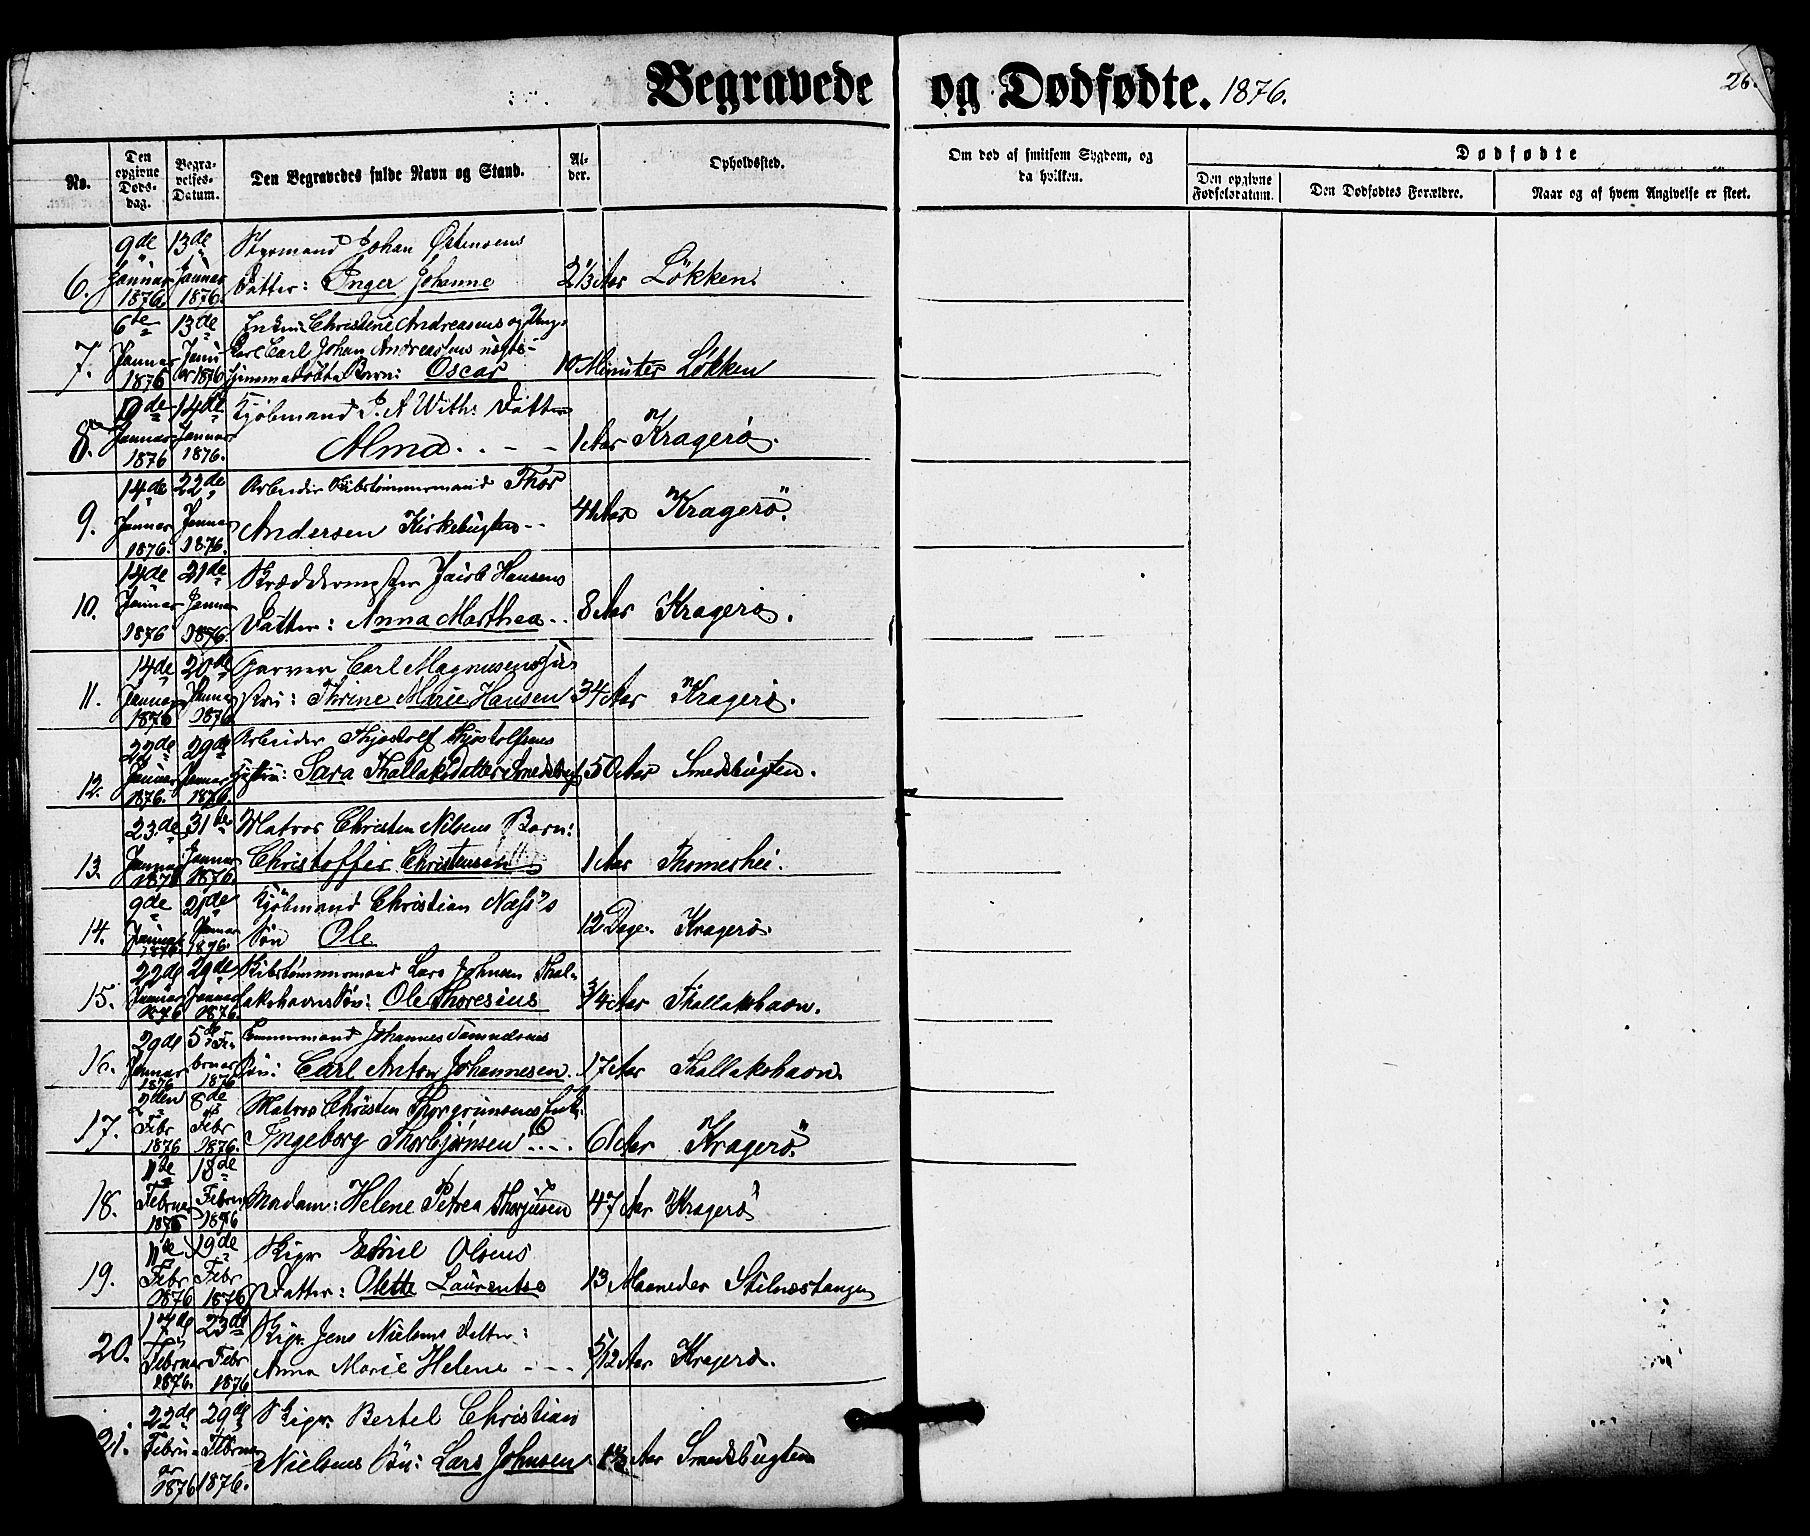 Begravede og Dødfødte. 1876.
26.
No.
Den opgivne Døds-dag.
Begra-velses-Datum.
Den Begravedes fulde Navn og Stand.
Al-der.
Opholdssted.
Om død af smitsom Sygdom, og da hvilken.
Dødfødte
Den opgivne Fødselsdatum.
Den Dødfødtes Forældre.
Naar og af hvem Angivelse er sleet.
9de 13de Styrmand Johan Østensens
6. Januar 1876. Januar 1876. Datter: Inger Johanne 2 1/3 Aar Løkken
6te 13de Christine Andreasens og
7. Januar 1876 Januar 1876 Carl Johan Andreasens
hjemmedøbte Barn: Oscar 10 Minuter Løkken
14de Kjøbmand P. A Withs Datter
8. Januar 1876 Januar 1876. Alma 1 Aar Kragerø.
14de 22de Arbeider Skibstømmermand Thor
9. Januar 1876. Januar 1876. Andersen Kirkebugten Aar Kragerø.
14de 21de Skræddermester Jacob Hansens
10. Januar 1876 Januar 1876. Datter: Anna Marthea 8 Aar Kragerø.
14de 20de Garver Carl Magnusens Hu-
11. Januar 1876 Januar 1876 stru: Thrine Marie Hansen 34 Aar Kragerø.
22de 29de Arbeider Thjostolf Thjostolfsens
12. Januar 1876. Januar 1876. Hustru: Sara Thallaksdatter Smedsbugt 50 Aar Smedsbugten.
23de 31te Matros Christen Nilsens Barn:
13. Januar 1876 Januar 1876. Christoffer Christensen 1 Aar Thomeshei.
9de 21de Kjøbmand Christian Næss's
14. Januar 1876 Januar 1876. Søn Ole 12 Dage. Kragerø
22de 29de Skibstømmermand Lars Johnsen Thal-
15. Januar 1876 Januar 1876. lakshavns Søn: Ole Thoresius 3/4 Aar Thallakshavn.
29de 5de Fe- Tømmermand Johannes
16. Januar 1876 bruar 1876 Søn: Carl Anton Johannesen. 17 Aar Thallakshavn.
2den 8de Matros Christen Thorgrimsens Enke:
17. Febr 1876 Febr 1876. Ingeborg Thorbjørnsen Aar Kragerø.
11te 18de
18. Februar 1876 Februar 1876 Madam: Helene Petrea 47 Aar Kragerø
11te 19de Skipr Olsens
19. Febr 1876 Febr 1876 Datter: Olette Laurentse 13 Maaneder Stilnestangen
17de 23de Skipr. Jens Nielsens Datter:
20. Februar 1876. Febr 1876 Anna Marie Helene 5/12 Aar Kragerø.
22de 29de Skipr. Bertel Christian
21. Februar 1876 Februar 1876. Nielsens Søn: Lars Johnsen Aar Smedsbugten